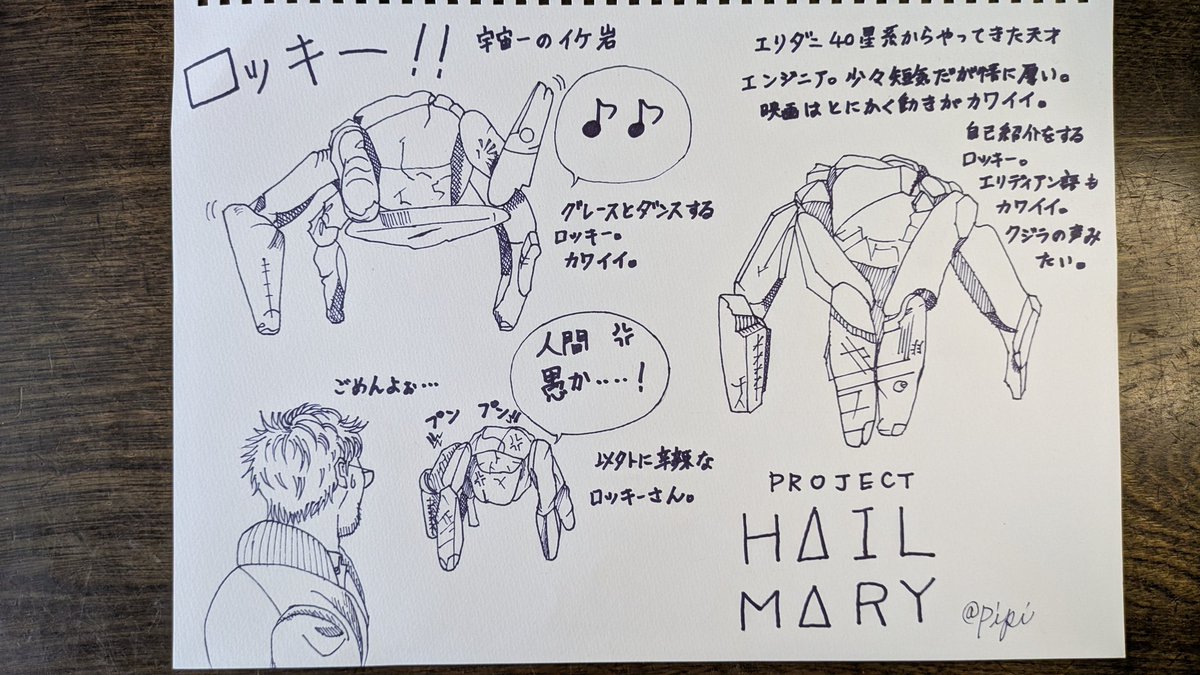 ロッキー!!
宇宙一のイケ岩
♪♪
グレースとダンスする
ロッキー。
カワイイ。
エリダニ40星系からやってきた天才
エンジニア。少々短気だが情に厚い。
映画はとにかく動きがカワイイ。
自己紹介をする
ロッキー。
エリディアン語も
カワイイ。
クジラの声み
たい。
ごめんよぉ…
プン プン!!
人間
愚か……!
以外に辛辣な
ロッキーさん。
PROJECT
HAIL
MARY
@pipi